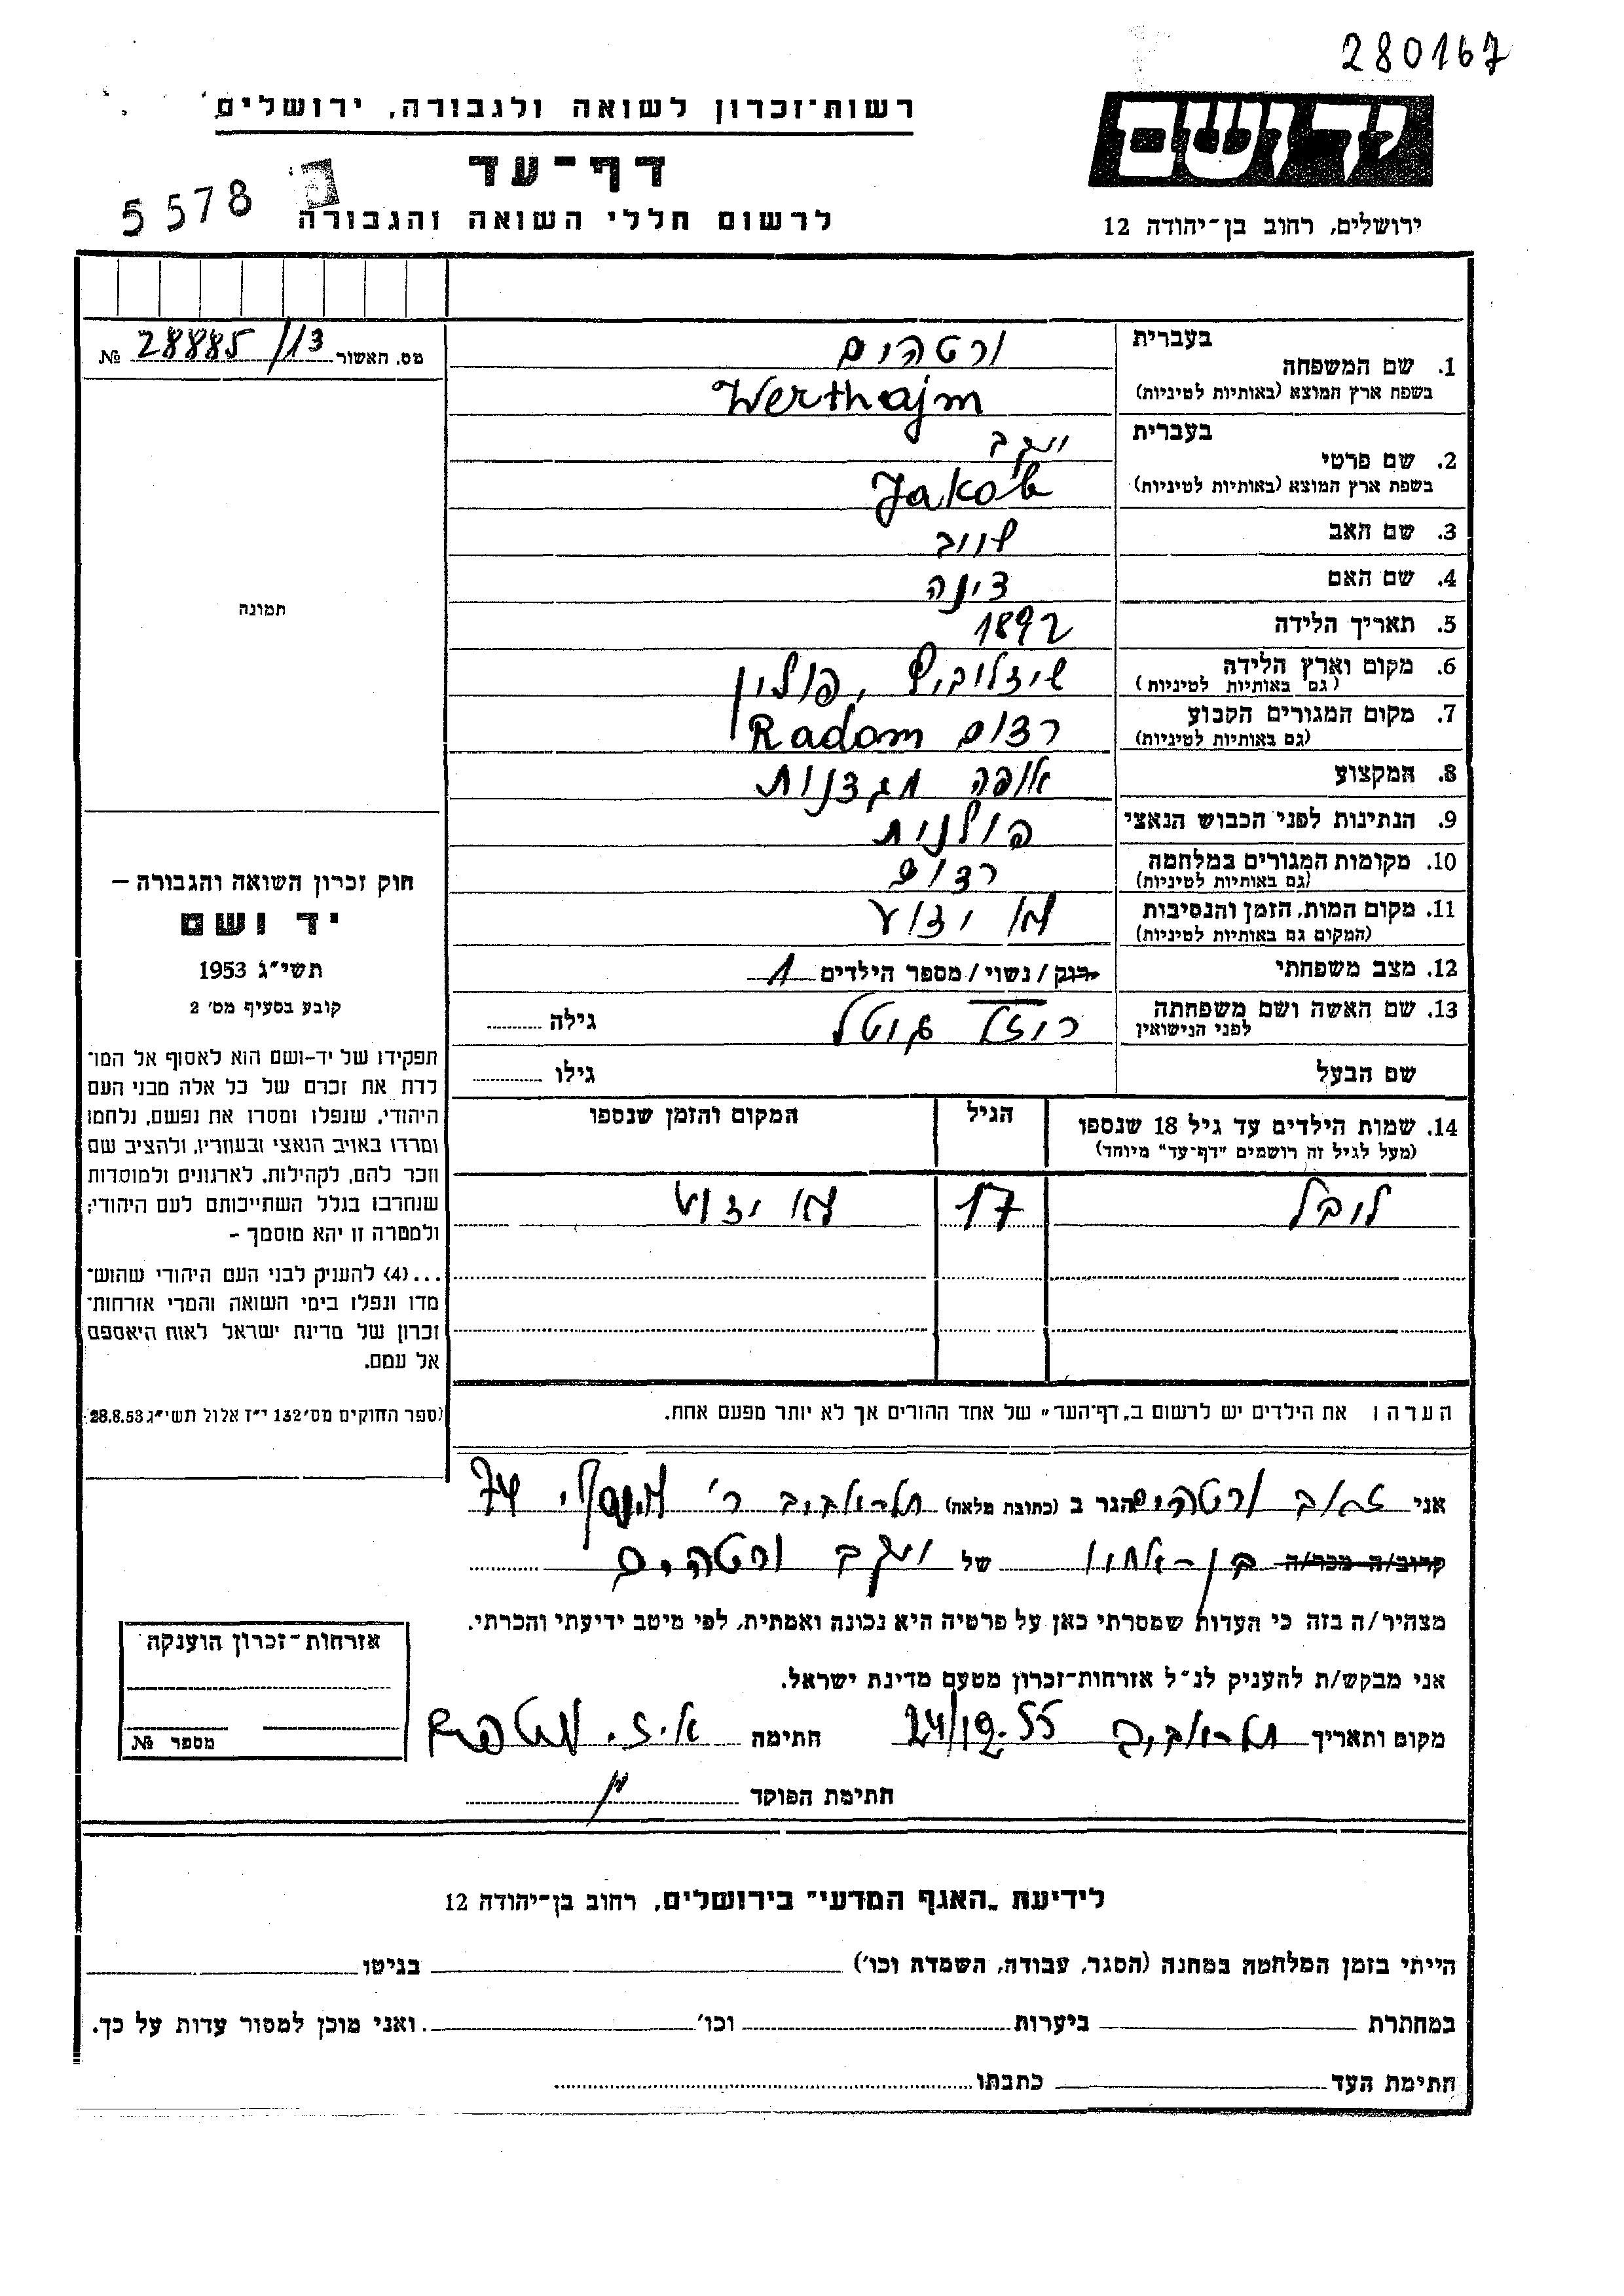 280167
רשות-זכרון לשואה ולגבורה, ירושלים
יד ושם
דף-עד
5578
לרשום חללי השואה והגבורה
ירושלים, רחוב בן-יהודה 12
מס. האשור 28885/13 №
בעברית
1. שם המשפחה ורטהים
בשפת ארץ המוצא (באותיות לטיניות) Werthajm
בעברית
2. שם פרטי יעקב
בשפת ארץ המוצא (באותיות לטיניות) Jakob
3. שם האב
4. שם האם דינה
5. תאריך הלידה 1892
6. מקום וארץ הלידה שידלוביץ, פולין
(גם באותיות לטיניות)
7. מקום המגורים הקבוע רדום Radom
(גם באותיות לטיניות)
8. המקצוע אופה מגדנות
9. הנתינות לפני הכבוש הנאצי פולנית
10. מקומות המגורים במלחמה רדום
(גם באותיות לטיניות)
11. מקום המות, הזמן והנסיבות לא ידוע
(המקום גם באותיות לטיניות)
12. מצב משפחתי רוק/נשוי/מספר הילדים 1
13. שם האשה ושם משפחתה רוזל גוטל גילה
לפני הנישואין
שם הבעל גילו
14. שמות הילדים עד גיל 18 שנספו הגיל המקום והזמן שנספו
(מעל לגיל זה רושמים "דף-עד" מיוחד)
לובל 17 לא ידוע
הערה: את הילדים יש לרשום ב"דף-העד" של אחד ההורים אך לא יותר מפעם אחת.
תמונה
חוק זכרון השואה והגבורה –
יד ושם
תשי"ג 1953
קובע בסעיף מס' 2
תפקידו של יד-ושם הוא לאסוף אל המו־
לדת את זכרם של כל אלה מבני העם
היהודי, שנפלו ומסרו את נפשם, נלחמו
ומרדו באויב הנאצי ובעוזריו, ולהציב שם
וזכר להם, לקהילות, לארגונים ולמוסדות
שנחרבו בגלל השתייכותם לעם היהודי;
ולמטרה זו יהא מוסמך –
...(4) להעניק לבני העם היהודי שהוש־
מדו ונפלו בימי השואה והמרי אזרחות־
זכרון של מדינת ישראל לאות היאספם
אל עמם.
(ספר החוקים מס' 132 י"ז אלול תשי"ג 28.8.53)
אני זאב ורטהים הגר ב (כתובת מלאה) תל-אביב ר' 74
קרוב/ה מכר/ה בן-אחיו של יעקב ורטהים
מצהיר/ה בזה כי העדות שמסרתי כאן על פרטיה היא נכונה ואמתית, לפי מיטב ידיעתי והכרתי.
אני מבקש/ת להעניק לנ"ל אזרחות-זכרון מטעם מדינת ישראל.
מקום ותאריך תל-אביב 24/12.55 חתימה
חתימת הפוקד
אזרחות-זכרון הוענקה
מספר №
לידיעת "האגף המדעי" בירושלים, רחוב בן-יהודה 12
הייתי בזמן המלחמה במחנה (הסגר, עבודה, השמדה וכו') בגיטו
במחתרת ביערות וכו' ואני מוכן למסור עדות על כך.
חתימת העד כתבתו